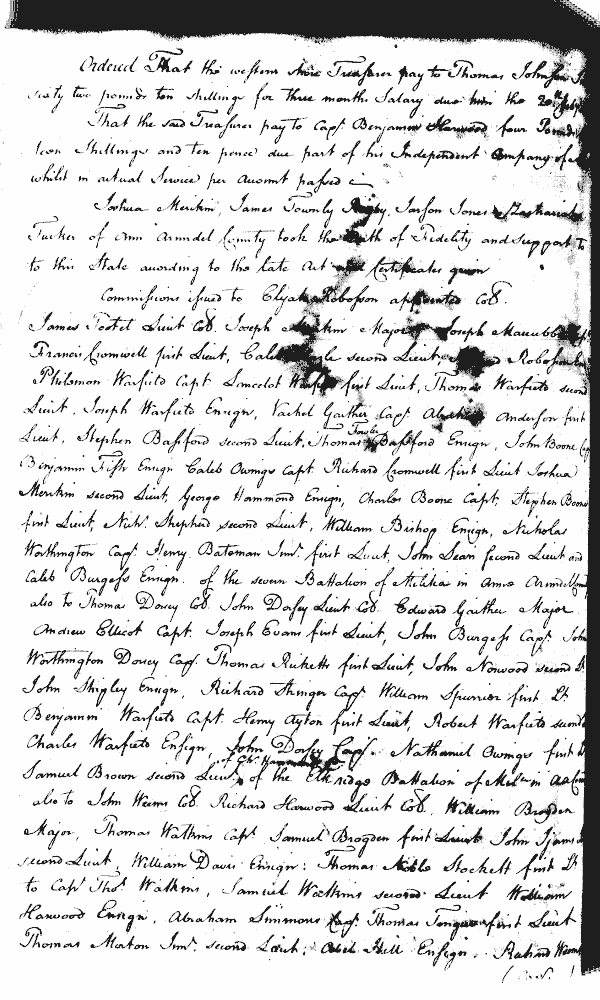 Ordered That the western shore Treasurer pay to Thomas Johnson
sixty two pounds ten shillings for three months Salary due him the 20th
That the said Treasurer pay to Capt Benjamin Harwood four Pounds
teen Shillings and ten pence due part of his Independent Company of
whilst in actual Service per Accomt passed
Joshua Merikin, James Townly Rigby, Jarson Jones Zachariah
Tucker of Ann Arundel County took the Oath of Fidelity and Support
to this State according to the late Act and Certificates given
Commissions issued to Elijah Robosson appointed Col.
James Tootel Lieut Col. Joseph Merikin Major Joseph
Francis Cromwell first Lieut, Caleb second Lieut, Robosson
Philemon Warfield Capt Lancelot Warfield first Lieut, Thomas Warfield second
Lieut. Joseph Warfield Ensign, Vachel Gaither Capt. Abraham Anderson first
Lieut, Stephen Bassford second Lieut, Thomas Fowler Bassford Ensign, John Boone
Benjamin Fish Ensign Caleb Owings Capt Richard Cromwell first Lieut Joshua
Merikin second Lieut, George Hammond Ensign, Charles Boone Capt, Stephen Boone
first Lieut, Nichs Shepherd second Lieut, William Bishop Ensign, Nicholas
Worthington Capt. Henry Bateman Junr first Lieut, John Sean second Lieut and
Caleb Burgess Ensign. of the seven Battalion of Militia in Anne Arundel
also to Thomas Dorsey Col. John Dorsey Lieut Col. Edward Gaither Major
Andrew Ellicot Capt. Joseph Evans first Lieut, John Burgess Capt. John
Worthington Dorsey Capt Thomas Ricketts first Lieut, John Norwood second Lt
John Shipley Ensign, Richard Stringer Capt William Spurrier first Lt
Benjamin Warfield Capt. Henry Ayton first Lieut, Robert Warfield second
Charles Warfield Ensign, John Dorsey Capt. Nathaniel Owings first
Samuel Brown second Lieut, of the Elkridge Battalion of Mila in
also to John Weems Col. Richard Harwood Lieut Col. William Brogden
Major, Thomas Watkins Capt Samuel Brogden first Lieut John Ijams
second Lieut, William Davis Ensign: Thomas Noble Stockett first Lt
to Capt Thos Watkins, Samuel Watkins second Lieut William
Harwood Ensign, Abraham Simmons Capt Thomas Tongue first Lieut
Thomas Morton Junr second Lieut, Abel Hill Ensign. Richard Weems